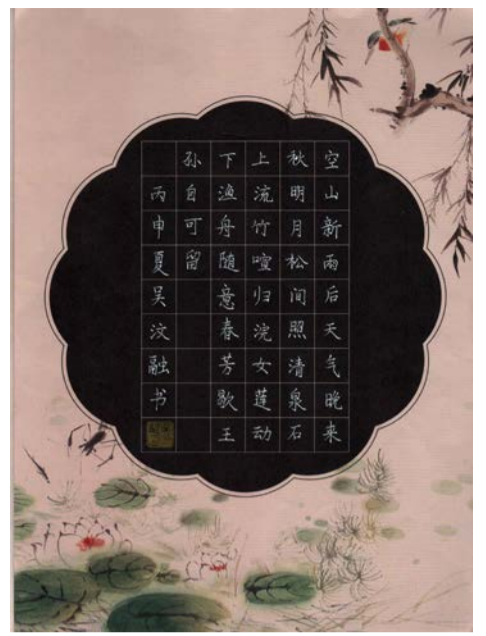 空山新雨后天气晚来
秋明月松间照清泉石
上流竹喧归浣女莲动
下渔舟随意春芳歇王
孙自可留
丙申夏吴汶融书